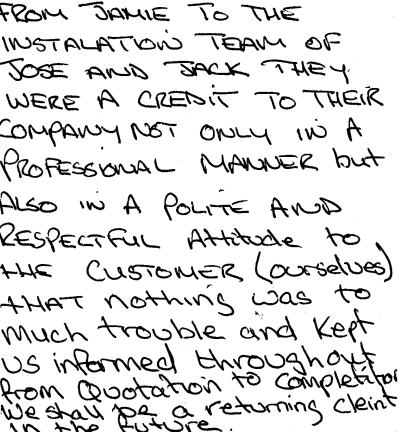 FROM JAMIE TO THE
INSTALATION TEAM OF
JOSE AND JACK THEY
WERE A CREDIT TO THEIR
COMPANY NOT ONLY IN A
PROFESSIONAL MANNER but
ALSO IN A POLITE AND
RESPECTFUL Attitude to
tHE CUSTOMER (ourselves)
tHAT nothing was to
much trouble and Kept
US informed throughout
from Quotation to completion
We shall be a returning cleint
in the future.